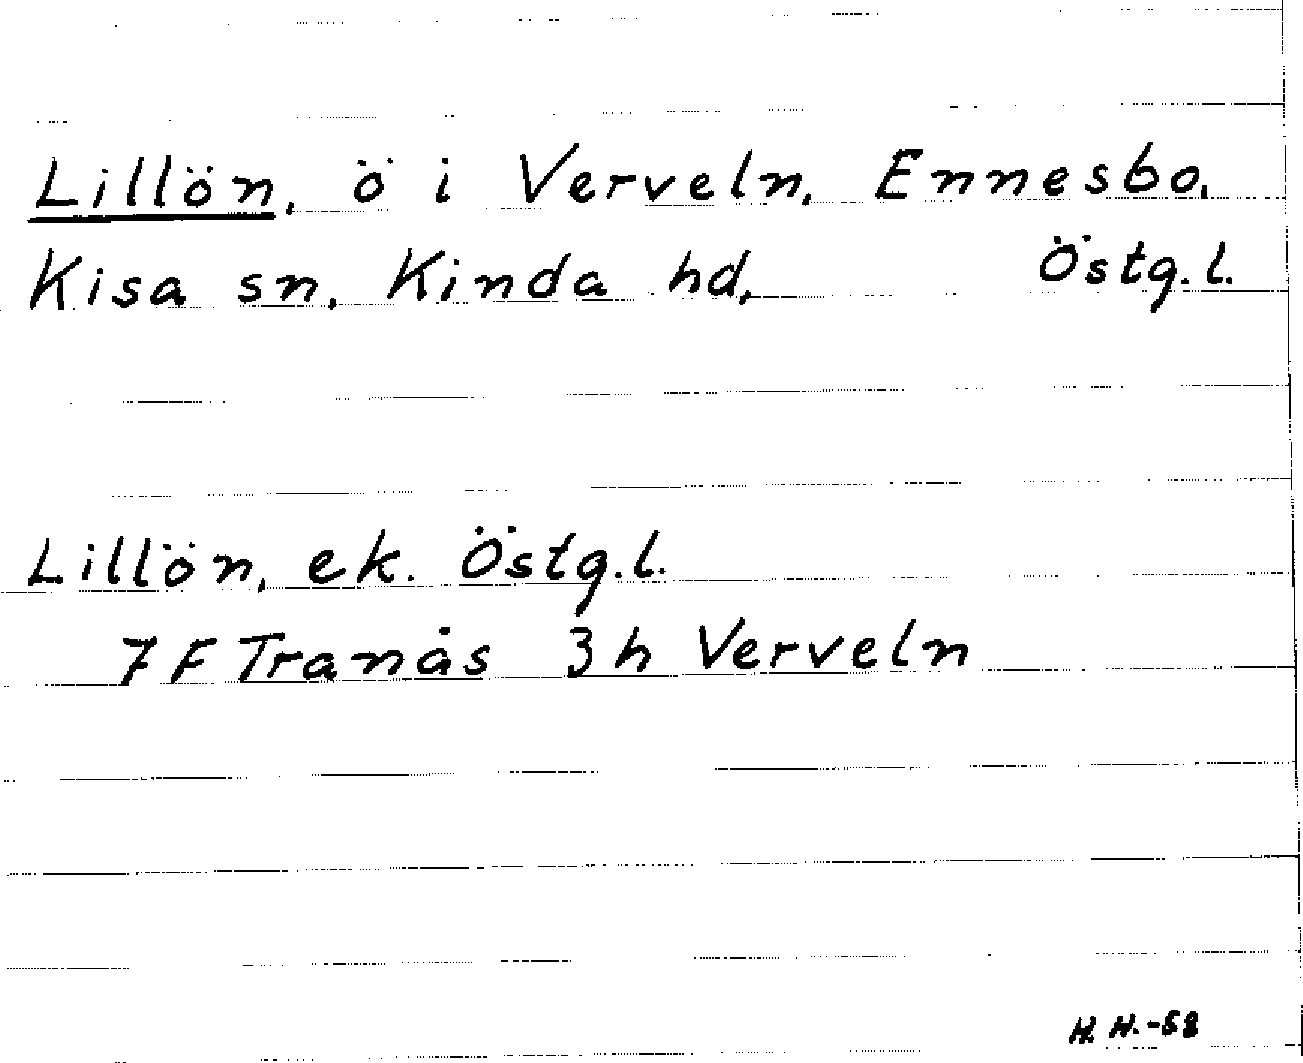 Lillön, ö i Verveln, Ennesbo,
Kisa sn, Kinda hd, Östg.l.
Lillön, ek. Östg.l.
7 F Tranås 3 h Verveln
H. H. -58